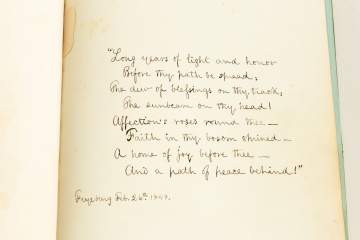 "Long years of light and honor
Before thy path be spread,
The dew of blessings on thy track,
The sunbeam on thy head!
Affection's roses round thee —
Faith in thy bosom shrined —
A home of joy before thee —
And a path of peace behind!"
Fryeburg Feb. 26th